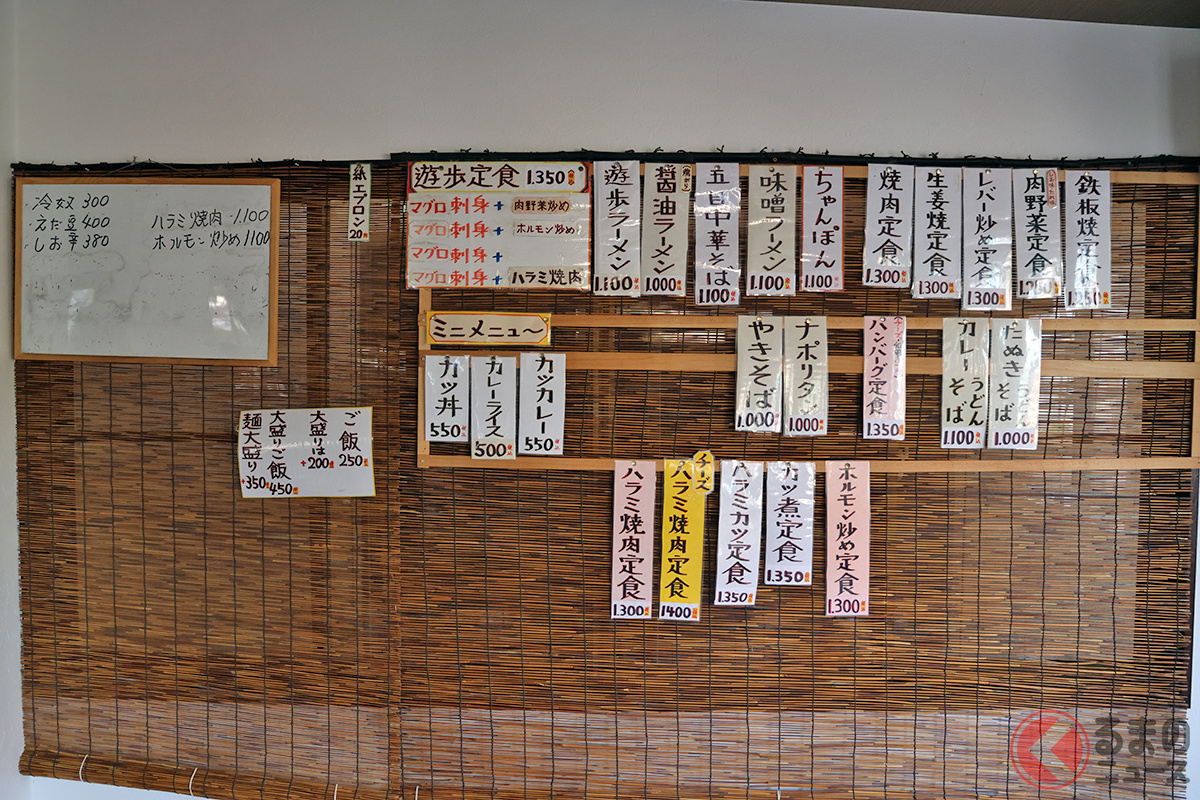 ・冷奴 300
・えだ豆 400
ハラミ焼肉 1.100
ホルモン炒め 1100
紙エプロン 20円
遊歩定食 1.350
マグロ刺身 + 肉野菜炒め
マグロ刺身 + ホルモン炒め
マグロ刺身 +
マグロ刺身 + ハラミ焼肉
遊歩ラーメン 1.100
醤油ラーメン 1.000
五目中華そば 1.100
味噌ラーメン 1.100
ちゃんぽん 1.100
焼肉定食 1.300
生姜焼定食 1.300
レバー炒め定食 1.300
肉野菜定食 1.250
鉄板焼定食 1.250
ミニメニュ〜
カツ丼 550
カレーライス 500
カツカレー 550
やきそば 1.000
ナポリタン 1.000
ハンバーグ定食 1.350
カレー うどん そば 1.100
たぬき うどん そば 1.000
ご飯 250
大盛りは +200
大盛りご飯 450
麺大盛り +350
ハラミ焼肉定食 1.300
チーズ
ハラミ焼肉定食 1400
ハラミカツ定食 1.350
カツ煮定食 1.350
ホルモン炒め定食 1.300
くるまのニュース